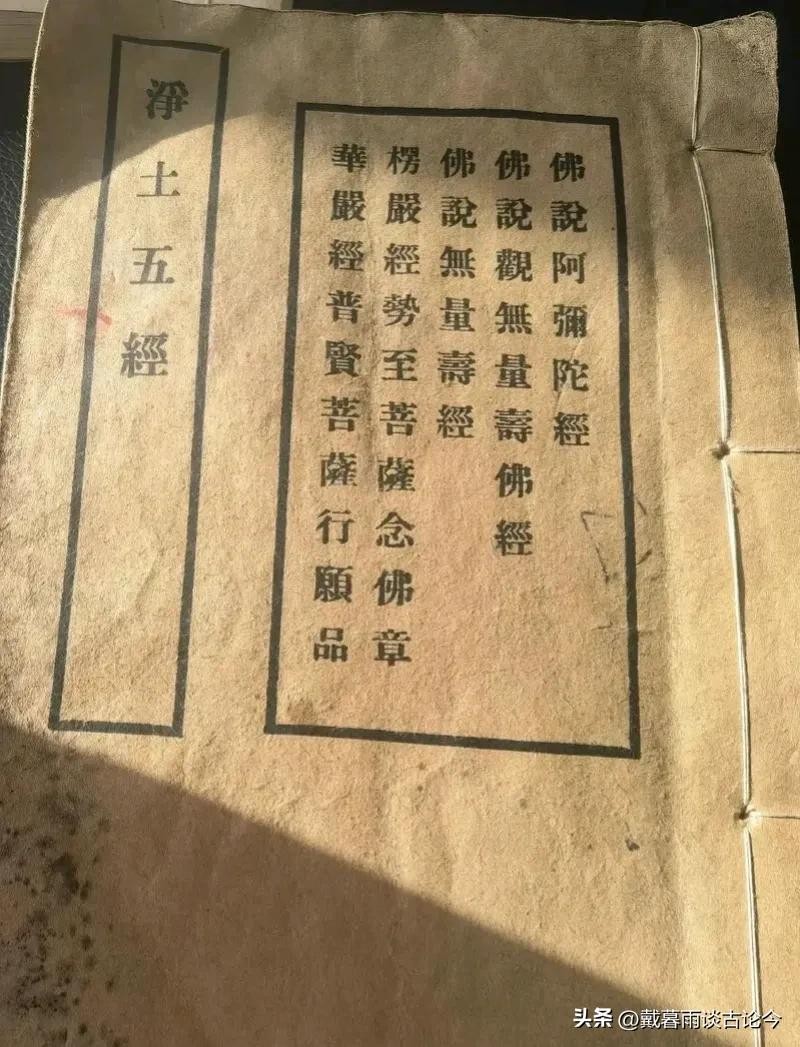 佛說阿彌陀經
佛說觀無量壽佛經
佛說無量壽經
楞嚴經勢至菩薩念佛章
華嚴經普賢菩薩行願品
淨土五經
头条 @戴暮雨谈古论今